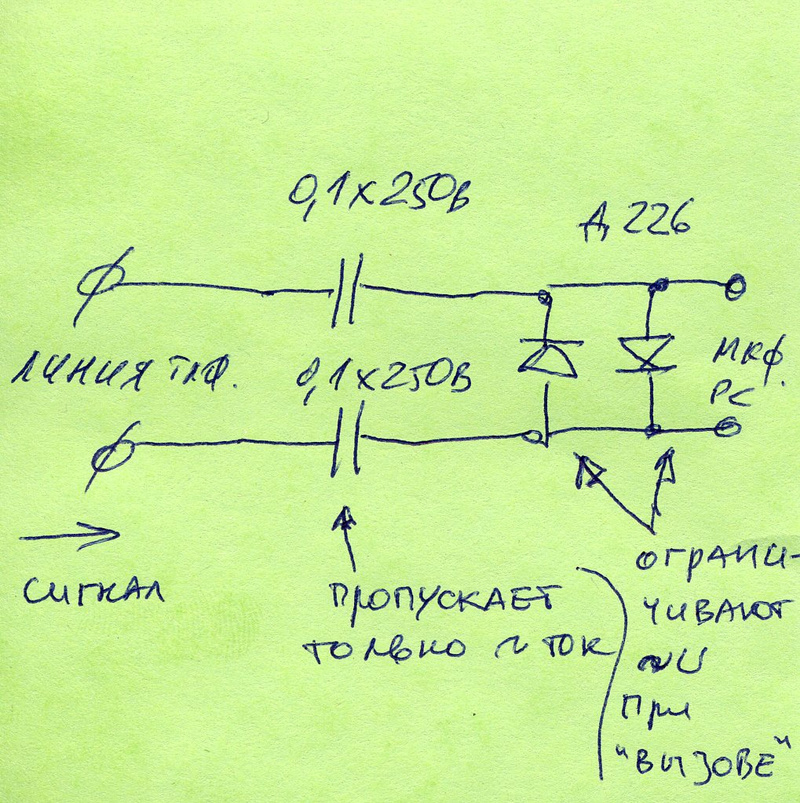 0,1x250в
Д 226
ЛИНИЯ ТЛФ.
0,1x250в
МКФ.
PC
СИГНАЛ
ПРОПУСКАЕТ
ТОЛЬКО ~ ТОК
ОГРАНИ-
ЧИВАЮТ
~U
ПРИ
"ВЫЗОВЕ"